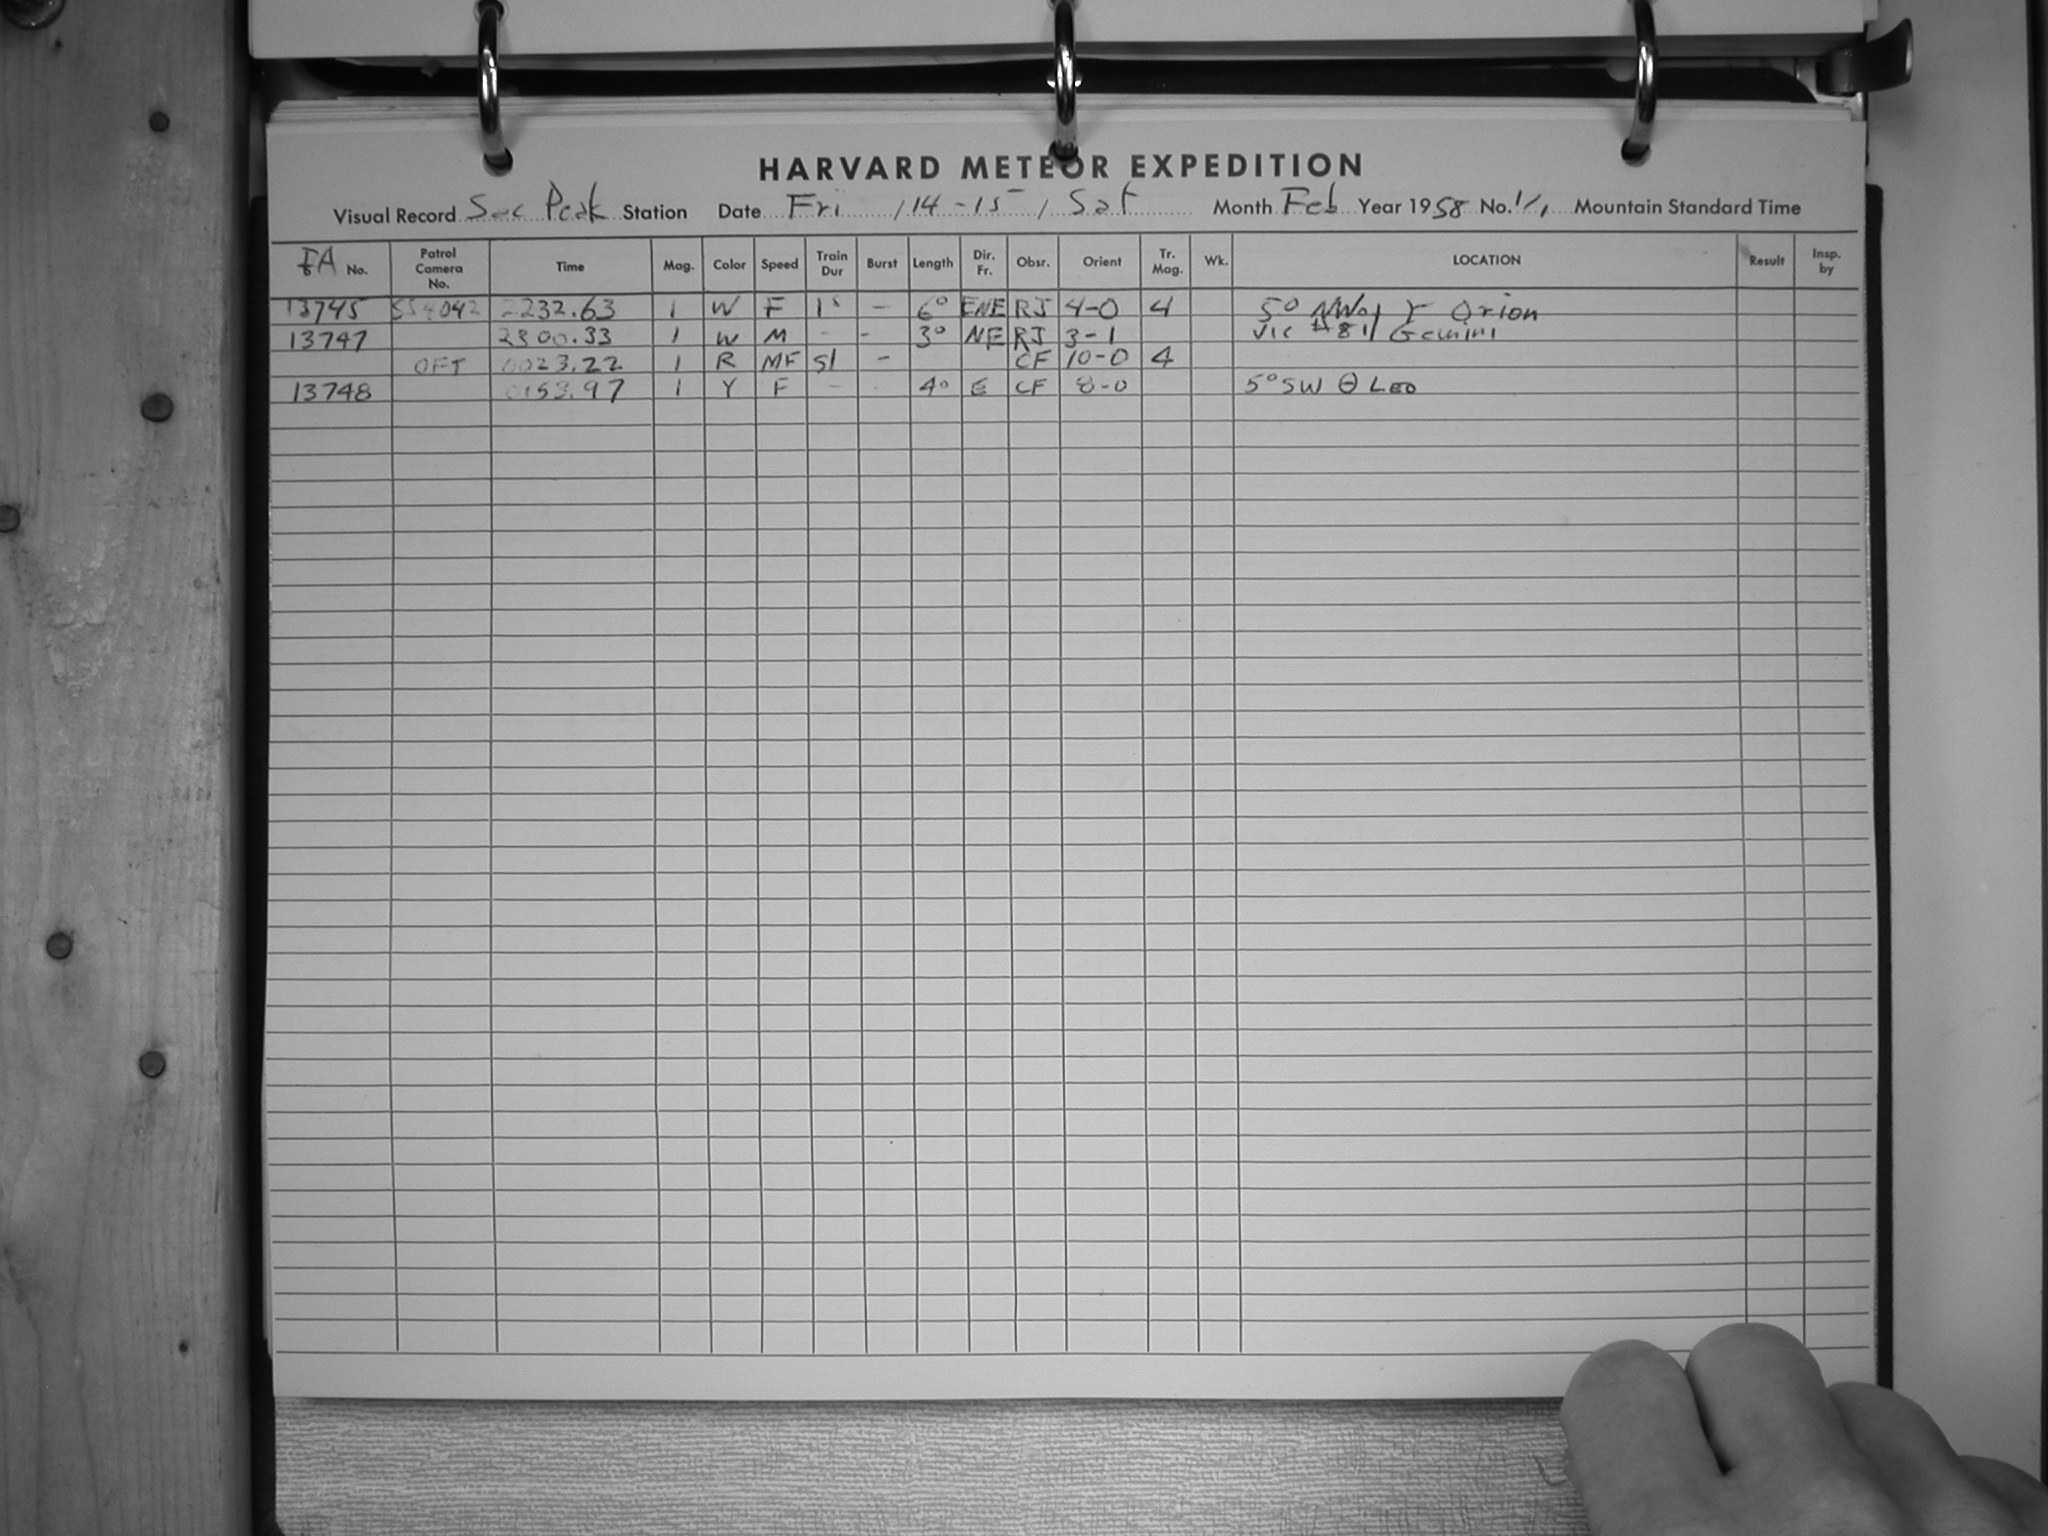 HARVARD METEOR EXPEDITION
Visual Record Sac Peak Station Date Fri / 14-15 / Sat Month Feb Year 1958 No. 1/1 Mountain Standard Time
No. Patrol Camera No. Time Mag. Color Speed Train Dur Burst Length Dir. Fr. Obsr. Orient Tr. Mag. Wk. LOCATION Result Insp. by
13745 SS4042 2232.63 1 W F 1s - 6° ENE RJ 4-0 4 5° NW of γ Orion
13747 2300.33 1 W M - - 3° NE RJ 3-1 Vic #81 Gemini
OFT 0023.22 1 R MF sl - CF 10-0 4
13748 0153.97 1 Y F - - 4° E CF 8-0 5° SW θ LEO